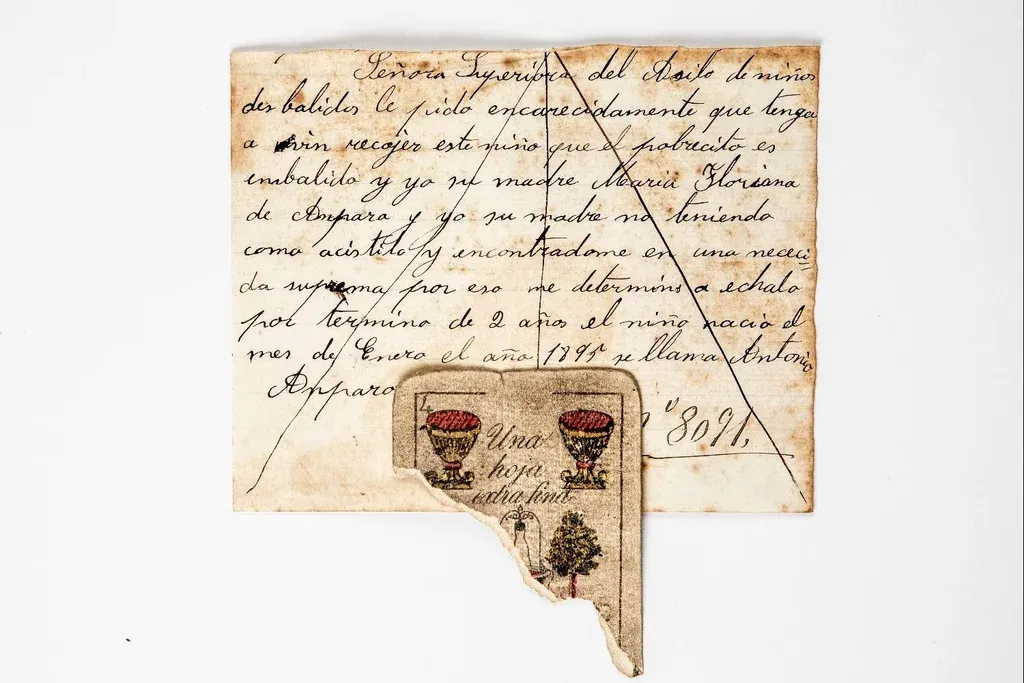 Señora Superiora del Asilo de niños
desbalidos le pido encarecidamente que tenga
a recojer este niño que el pobrecito es
imbalido y yo su madre Maria Floriana
de Ampara y yo su madre no teniendo
como acistilo y encontradome en una nececi=
da suprema por eso me determins a echalo
por termino de 2 años el niño nacio el
mes de Enero el año 1895 se llama Antonio
Anparo
8091,
4
Una
hoja
extra fina